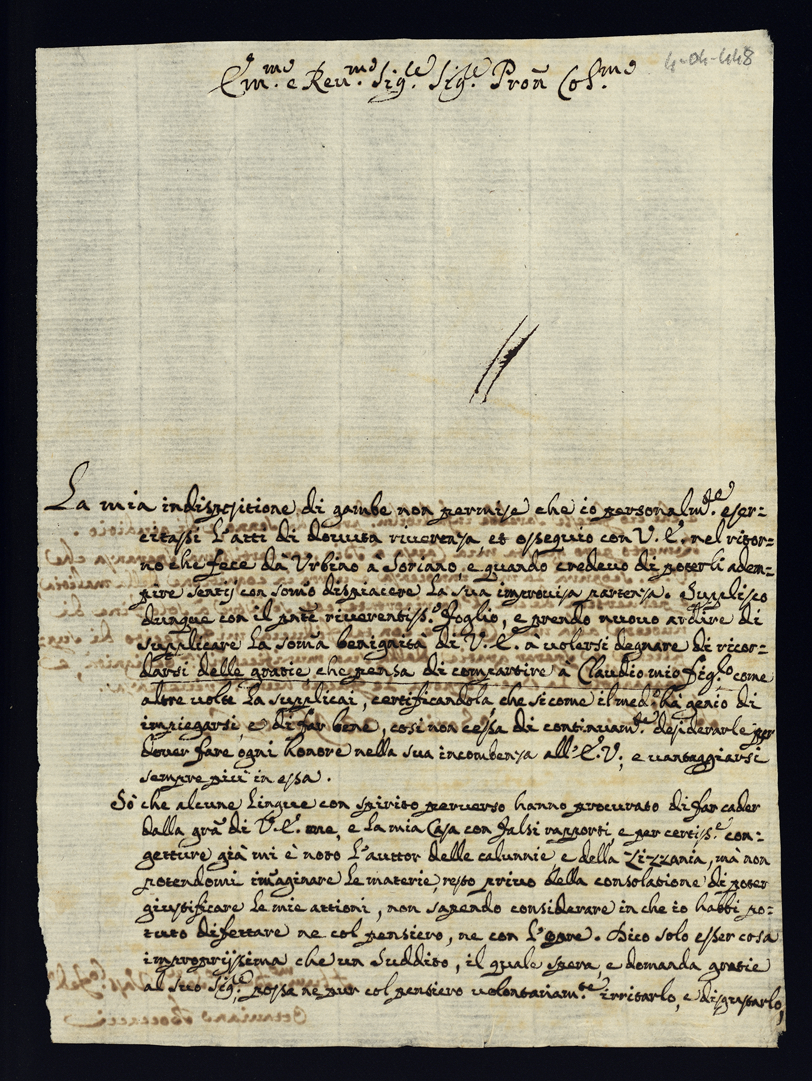 4-04-448
Em.mo e Reu.mo Sig.re Sig.re Pron Col.mo
La mia indispositione di gambe non permise che io personalm.te eser=
citassi l'atti di douuta riuerenza, et ossequio con V.E. nel ritor=
no che fece dà Vrbino à Soriano, e quando credeuo di poterli adem=
pire sentij con som̃o dispiacere la sua improuisa partenza. Supplisco
dunque con il pñte riuerentiss.o foglio, e prendo nuouo ardire di
supplicare la som̃a benignità di V.E. à uolersi degnare di ricor=
darsi delle gratie che pensa di compartire à Claudio mio fig.lo come
altre uolte la supplicai, certificandola, che sicome il med.o hà genio di
impiegarsi, e di far bene, così non cessa di continuam.te desiderarle per
douer fare ogni honore nella sua incombenza all'E.V., e uantaggiarsi
sempre più in essa.
Sò che alcune lingue con spirito peruerso hanno procurato di far cader
dalla grã di V.E. me, e la mia Casa con falsi rapporti, e per certiss.e con=
getture già mi è noto l'auttor delle calunnie, e della Zizzania, mà non
potendomi im̃aginare le materie resto priuo della consolatione di poter
giustificare le mie attioni, non sapendo considerare in che io habbi po=
tuto difettare ne col pensiero, ne con l'opre. Dico solo esser cosa
improprissima che un Suddito, il quale spera, e domanda gratie
al suo Sig.re, possa ne pur col pensiero uolontariam.te irritarlo, e disgustarlo,